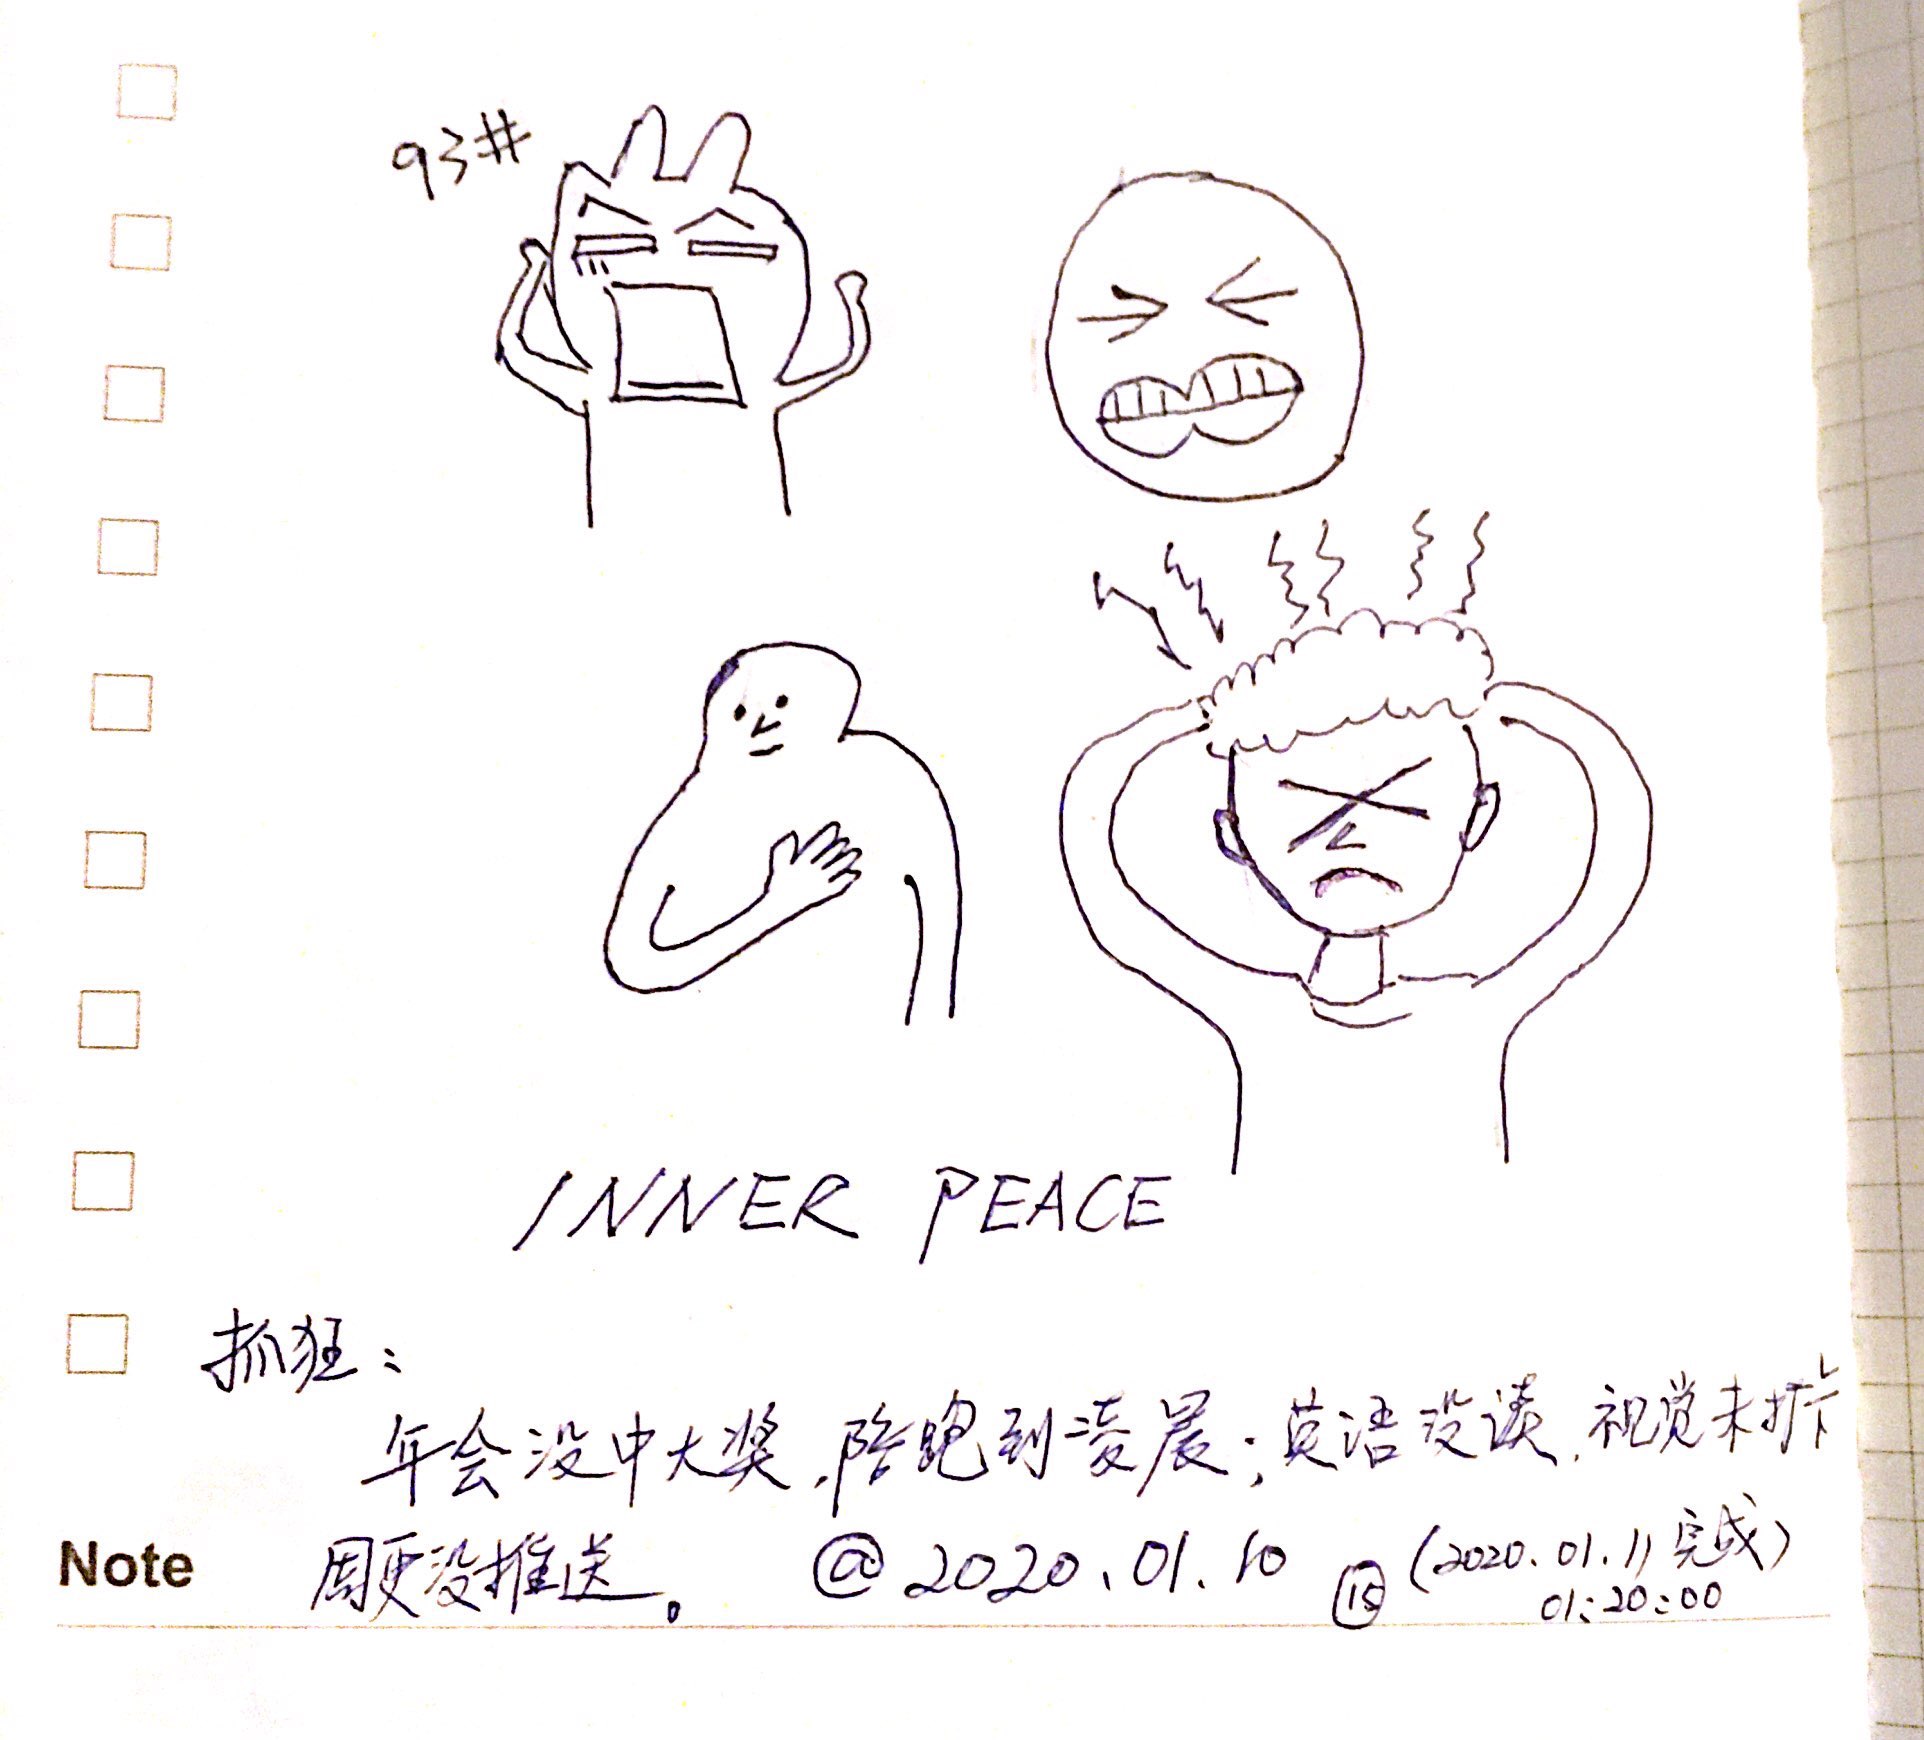 93#
INNER PEACE
抓狂:
年会没中大奖,陪跑到凌晨;英语没读,视觉未打卡
Note 周更没推送。 @2020.01.10 (2020.01.11完成)
01:20:00